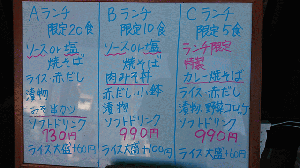 Aランチ
限定20食
ソースor塩
焼そば
ライス・赤だし
漬物
ソフトドリンク
730円
ライス大盛+60円
Bランチ
限定10食
ソースor塩
焼そば
肉みそ丼
赤だし・小鉢
漬物
ソフトドリンク
990円
ライス大盛+100円
Cランチ
限定5食
ランチ限定
特製
カレー焼そば
ライス・赤だし
漬物・野菜コロッケ
ソフトドリンク
990円
ライス大盛+60円